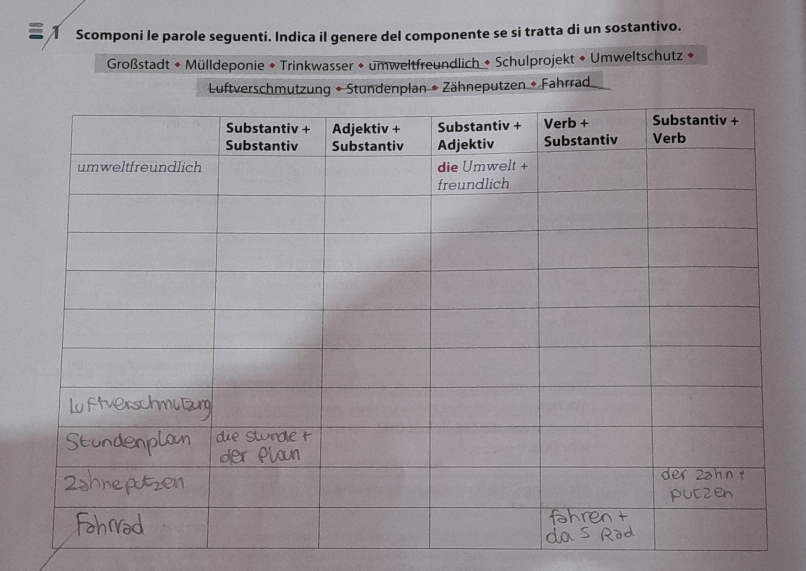 1 Scomponi le parole seguenti. Indica il genere del componente se si tratta di un sostantivo.
Großstadt • Mülldeponie • Trinkwasser • umweltfreundlich • Schulprojekt • Umweltschutz •
Luftverschmutzung • Stundenplan • Zähneputzen • Fahrrad
Substantiv + Substantiv
Adjektiv + Substantiv
Substantiv + Adjektiv
Verb + Substantiv
Substantiv + Verb
umweltfreundlich
die Umwelt + freundlich
Luftverschmutzung
Stundenplan
die Stunde +
der Plan
Zähneputzen
der Zahn +
putzen
Fahrrad
fahren +
das Rad